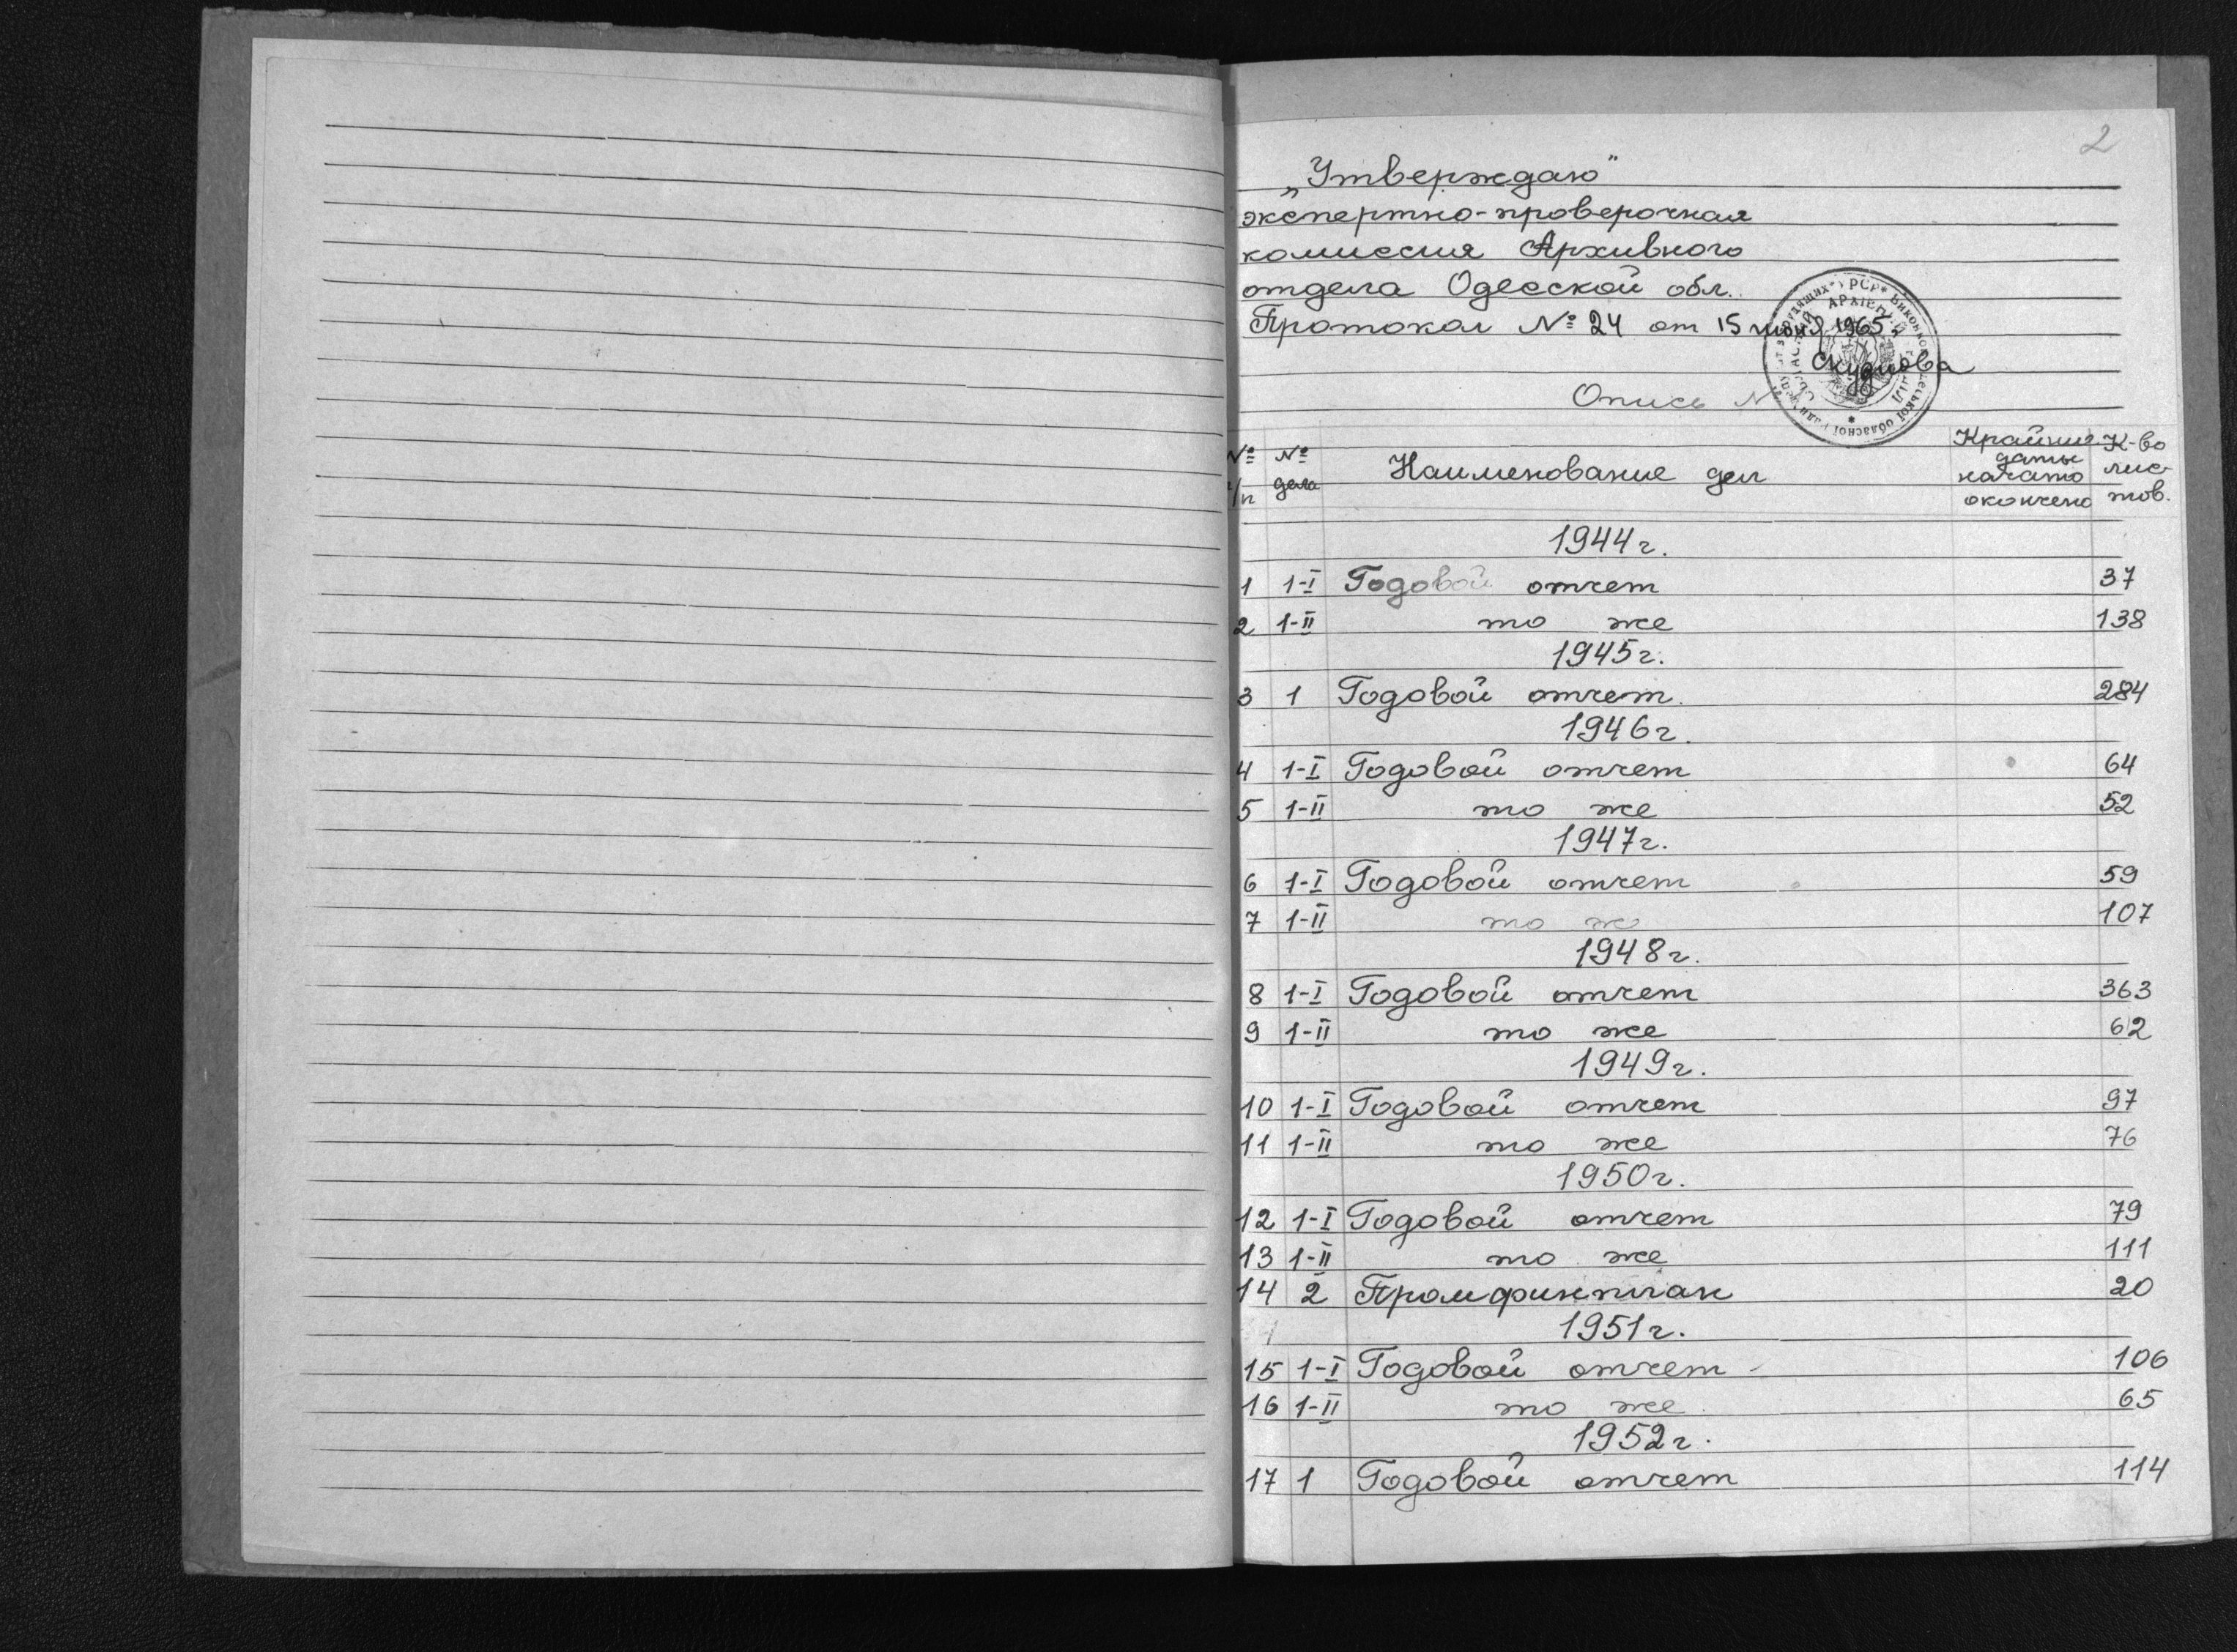 2
„Утверждаю“
экспертно-проверочная
комиссия Архивного
отдела Одесской обл.
Протокол № 24 от 15 июня 1965г.
Опись №
№ п/п | № дела | Наименование дел | Крайние даты начато окончено | К-во лис-тов.
1944г.
1 1-I Годовой отчет 37
2 1-II то же 138
1945г.
3 1 Годовой отчет. 284
1946г.
4 1-I Годовой отчет 64
5 1-II то же 52
1947г.
6 1-I Годовой отчет 59
7 1-II то ж 107
1948г.
8 1-I Годовой отчет 363
9 1-II то же 62
1949г.
10 1-I Годовой отчет 97
11 1-II то же 76
1950г.
12 1-I Годовой отчет 79
13 1-II то же 111
14 2 Промфинплан 20
1951г.
15 1-I Годовой отчет 106
16 1-II то же 65
1952г.
17 1 Годовой отчет 114